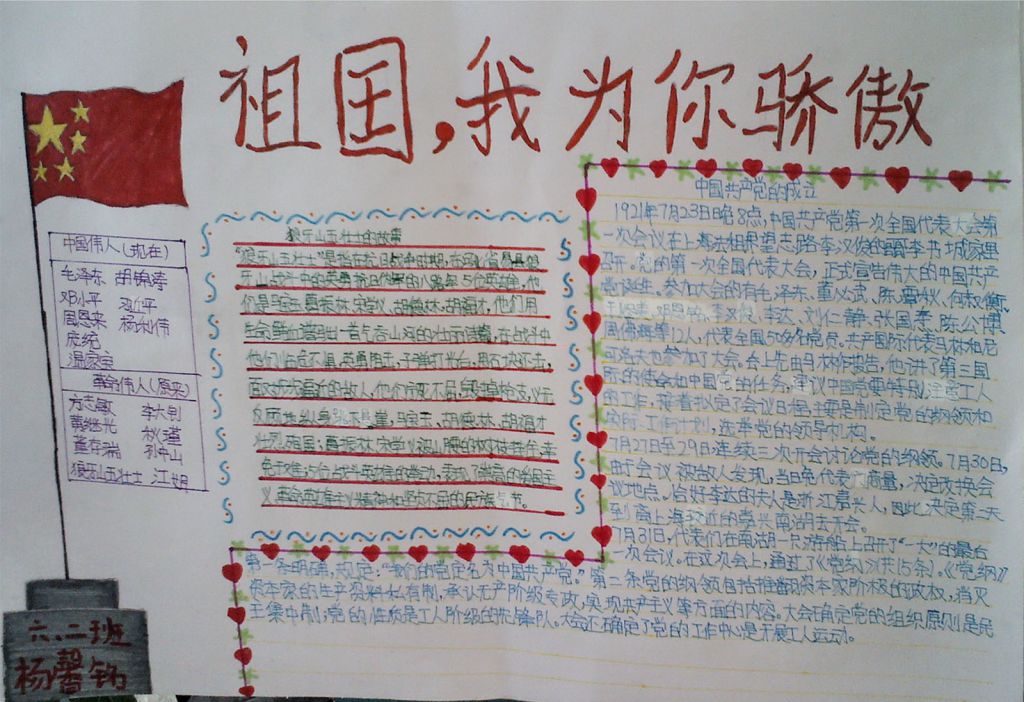 祖国,我为你骄傲
中国伟人(现在)
毛泽东 胡锦涛
邓小平 习近平
周恩来 杨利伟
庞统
温家宝
革命伟人(原来)
方志敏 李大钊
黄继光 秋瑾
董存瑞 孙中山
狼牙山五壮士 江姐
六.二班
杨馨钠
狼牙山五壮士的故事
"狼牙山五壮士"是指在抗日战争时期,在河北省易县狼
牙山战斗中的英勇抗击日伪军的八路军5位英雄,他
们是马宝玉、葛振林、宋学义、胡德林、胡福才,他们用
生命和鲜血谱写出一首气吞山河的壮丽诗篇,在战斗中
他们临危不惧,英勇阻击,子弹打光后,用石块还击,
面对步步逼近的敌人,他们宁死不屈,毁掉枪支,义无
反顾地纵身跳下悬崖,马宝玉、胡德林、胡福才
壮烈殉国;葛振林、宋学义被山腰的树枝挂住,幸
免于难。五位战斗英雄的举动,表现了崇高的爱国主
义、革命英雄主义精神和坚贞不屈的民族气节。
中国共产党的成立
1921年7月23日晚8点,中国共产党第一次全国代表大会第
一次会议在上海法租界望志路李汉俊的哥哥李书城家里
召开。党的第一次全国代表大会,正式宣告伟大的中国共产
党诞生,参加大会的有毛泽东、董必武、陈潭秋、何叔衡、
王尽美、邓恩铭、李汉俊、李达、刘仁静、张国焘、陈公博、
周佛海等12人,代表全国50多名党员。共产国际代表马林和尼
可洛夫也参加了大会。会上先由马林作报告,他讲了第三国
际的使命和中国党的任务,建议中国党要特别注意工人
的工作,接着拟定了会议日程,主要是制定党的纲领和
实际工作计划,选举党的领导机构。
7月27日至29日连续三次开会讨论党的纲领。7月30日,
由于会议被敌人发现,当日晚代表们商量,决定改换会
议地点。恰好李达的夫人是浙江嘉兴人,因此决定第二天
到离上海较近的嘉兴南湖去开会。
7月31日,代表们在南湖一只游船上召开了"一大"的最后
一次会议。在这次会上,通过了《党纲》(共15条)。《党纲》
第一条明确,规定:"我们的党定名为中国共产党。"第二条党的纲领包括推翻资本家阶级的政权,消灭
资本家的生产资料私有制,承认无产阶级专政,实现共产主义等方面的内容。大会确定党的组织原则是民
主集中制;党的性质是工人阶级的先锋队。大会还确定了党的工作中心是开展工人运动。